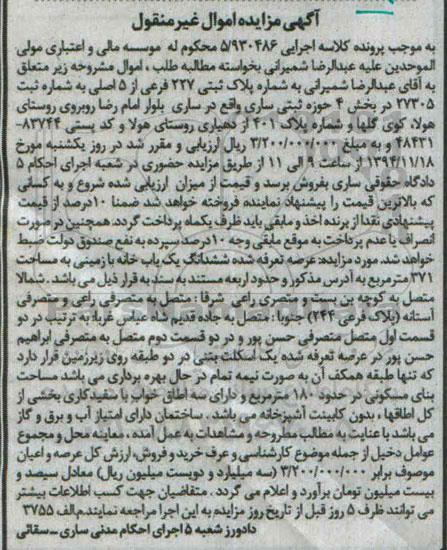 آگهی مزایده اموال غیر منقول
به موجب پرونده کلاسه اجرایی ۵/۹۳۰۴۸۶ محکوم له موسسه مالی و اعتباری مولی
الموحدین علیه عبدالرضا شمیرانی بخواسته مطالبه طلب ، اموال مشروحه زیر متعلق
به آقای عبدالرضا شمیرانی به شماره پلاک ثبتی ۲۲۷ فرعی از ۵ اصلی به شماره ثبت
۲۷۳۰۵ در بخش ۴ حوزه ثبتی ساری واقع در ساری بلوار امام رضا روبروی روستای
هولا، کوی گلها و شماره پلاک ۴۰۱ از دهیاری روستای هولا و کد پستی ۸۳۷۴۴-
۴۸۴۳۱ و به مبلغ ۳/۲۰۰/۰۰۰/۰۰۰ ریال ارزیابی و مقرر شد در روز یکشنبه مورخ
۱۳۹۴/۱۱/۱۸ از ساعت ۹ الی ۱۱ از طریق مزایده حضوری در شعبه اجرای احکام ۵
دادگاه حقوقی ساری بفروش برسد و قیمت از میزان ارزیابی شده شروع و به کسانی
که بالاترین قیمت را پیشنهاد نماینده فروخته خواهد شد ضمنا ۱۰درصد از قیمت
پیشنهادی نقدا از برنده اخذ و مابقی باید ظرف یکماه پرداخت گردد. همچنین در صورت
انصراف یا عدم پرداخت به موقع مابقی وجه ۱۰درصد سپرده به نفع صندوق دولت ضبط
خواهد شد. مورد مزایده: عرصه تعرفه شده ششدانگ یک باب خانه با زمینی به مساحت
۳۷۱ مترمربع به آدرس مذکور و حدود اربعه مستند به سند به قرار ذیل می باشد. شمالا
متصل به کوچه بن بست و متصری راعی شرقا : متصل به متصرفی راعی و متصرفی
آستانه (پلاک فرعی ۲۴۴) جنوبا : متصل به جاده قدیم شاه عباس غربا: به ترتیب در دو
قسمت اول متصل متصرفی حسن پور و در دو قسمت دوم متصل به متصرفی ابراهیم
حسن پور در عرصه تعرفه شده یک اسکلت بتنی در دو طبقه روی زیرزمین قرار دارد
که تنها طبقه همکف آن به صورت نیمه تمام در حال بهره برداری می باشد مساحت
بنای مسکونی در حدود ۱۸۰ مترمربع و دارای سه اطاق خواب با سفیدکاری بخشی از
کل اطاقها ، بدون کابینت آشپزخانه می باشد . ساختمان دارای امتیاز آب و برق و گاز
می باشد با عنایت به مطالب مطروحه و مشاهدات به عمل آمده ، معاینه محل و مجموع
عوامل دخیل از جمله موضوع کارشناسی و عرف خرید و فروش، ارزش کل عرصه و اعیان
موصوف برابر ۳/۲۰۰/۰۰۰/۰۰۰ (سه میلیارد و دویست میلیون ریال) معادل سیصد و
بیست میلیون تومان برآورد و اعلام می گردد . متقاضیان جهت کسب اطلاعات بیشتر
می توانند ظرف ۵ روز قبل از تاریخ روز مزایده به این اجرا مراجعه نمایند.م/الف ۳۷۵۵
دادورز شعبه ۵ اجرای احکام مدنی ساری – سقائی